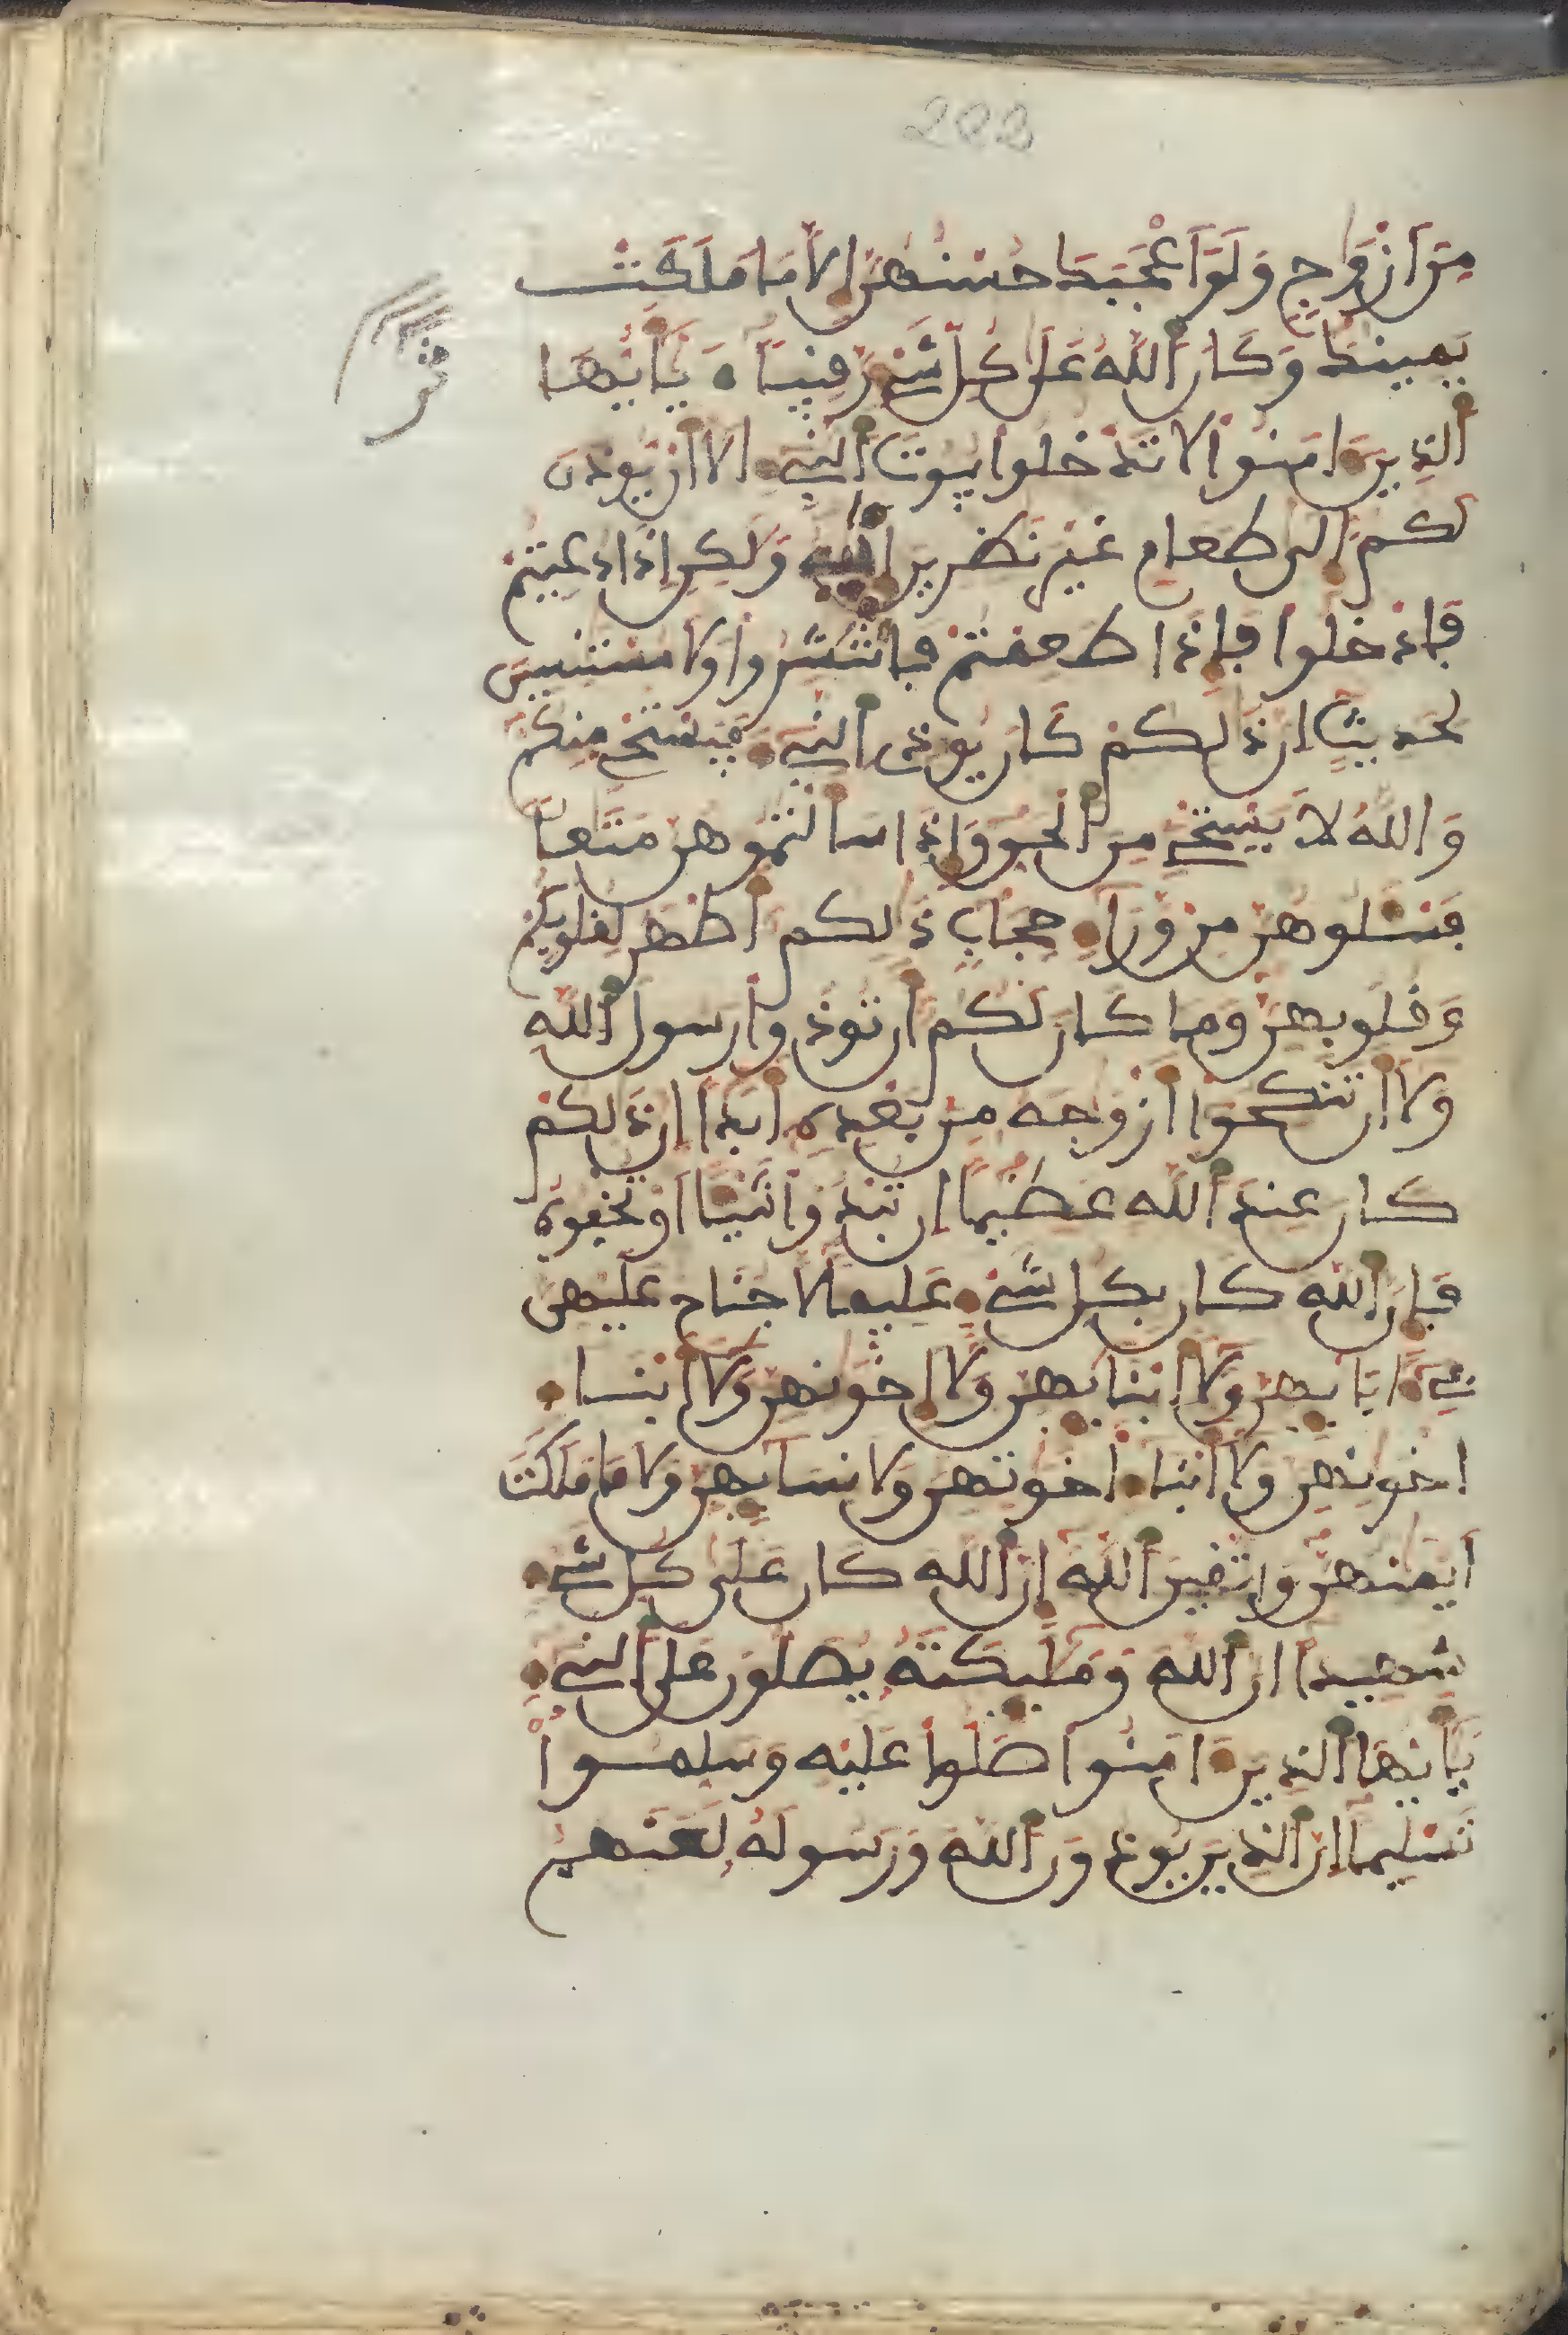 202
مِنَ اَزْوَٰجٍ وَلَوَ اَعْجَبَكَ حُسْنُهُنَّ إِلَّا مَا مَلَكَتْ
يَمِينُكَ وَكَانَ اَللَّهُ عَلَىٰ كُلِّ شَيْءٍ رَّقِيبًا يَٰأَيُّهَا
اَلذِينَ ءَامَنُوا لَا تَدْخُلُوا بُيُوتَ اَلنَّبِيءِ الَّا أَنْ يُّوذَنَ
لَكُمُ إِلَىٰ طَعَامٍ غَيْرَ نَٰظِرِينَ إِنَيٰهُ وَلَكِنِ اِذَا دُعِيتُمْ
فَادْخُلُوا فَإِذَا طَعِمْتُمْ فَانْتَشِرُوا وَلَا مُسْتَٰنِسِينَ
لِحَدِيثٍ اِنَّ ذَٰلِكُمْ كَانَ يُوذِى اَلنَّبِيءَ فَيَسْتَحْيِ مِنكُمْ
وَاللَّهُ لَا يَسْتَحْيِ مِنَ اَلْحَقِّ وَإِذَا سَأَلْتُمُوهُنَّ مَتَٰعًا
فَسْـَٔلُوهُنَّ مِنْ وَّرَاءِ حِجَابٍ ذَٰلِكُمُ أَطْهَرُ لِقُلُوبِكُمْ
وَقُلُوبِهِنَّ وَمَا كَانَ لَكُمُ أَنْ تُوذُوا رَسُولَ اَللَّهِ
وَلَا أَنْ تَنكِحُوا أَزْوَٰجَهُ مِنْ بَعْدِهِ أَبَدًا اِنَّ ذَٰلِكُمْ
كَانَ عِندَ اَللَّهِ عَظِيمًا اِنْ تُبْدُوا شَيْـًٔا اَوْ تُخْفُوهُ
فَإِنَّ اَللَّهَ كَانَ بِكُلِّ شَيْءٍ عَلِيمًا لَّا جُنَاحَ عَلَيْهِنَّ
فِى ءَابَائِهِنَّ وَلَا أَبْنَائِهِنَّ وَلَا إِخْوَٰنِهِنَّ وَلَا أَبْنَاءِ
اِخْوَٰنِهِنَّ وَلَا أَبْنَاءِ أَخَوَٰتِهِنَّ وَلَا نِسَائِهِنَّ وَلَا مَا مَلَكَتَ
اَيْمَٰنُهُنَّ وَاتَّقِينَ اَللَّهَ إِنَّ اَللَّهَ كَانَ عَلَىٰ كُلِّ شَيْءٍ
شَهِيدًا اِنَّ اَللَّهَ وَمَلَٰئِكَتَهُ يُصَلُّونَ عَلَى اَلنَّبِيءِ
يَٰأَيُّهَا اَلذِينَ ءَامَنُوا صَلُّوا عَلَيْهِ وَسَلِّمُوا
تَسْلِيمًا إِنَّ اَلذِينَ يُوذُونَ اَللَّهَ وَرَسُولَهُ لَعَنَهُمُ